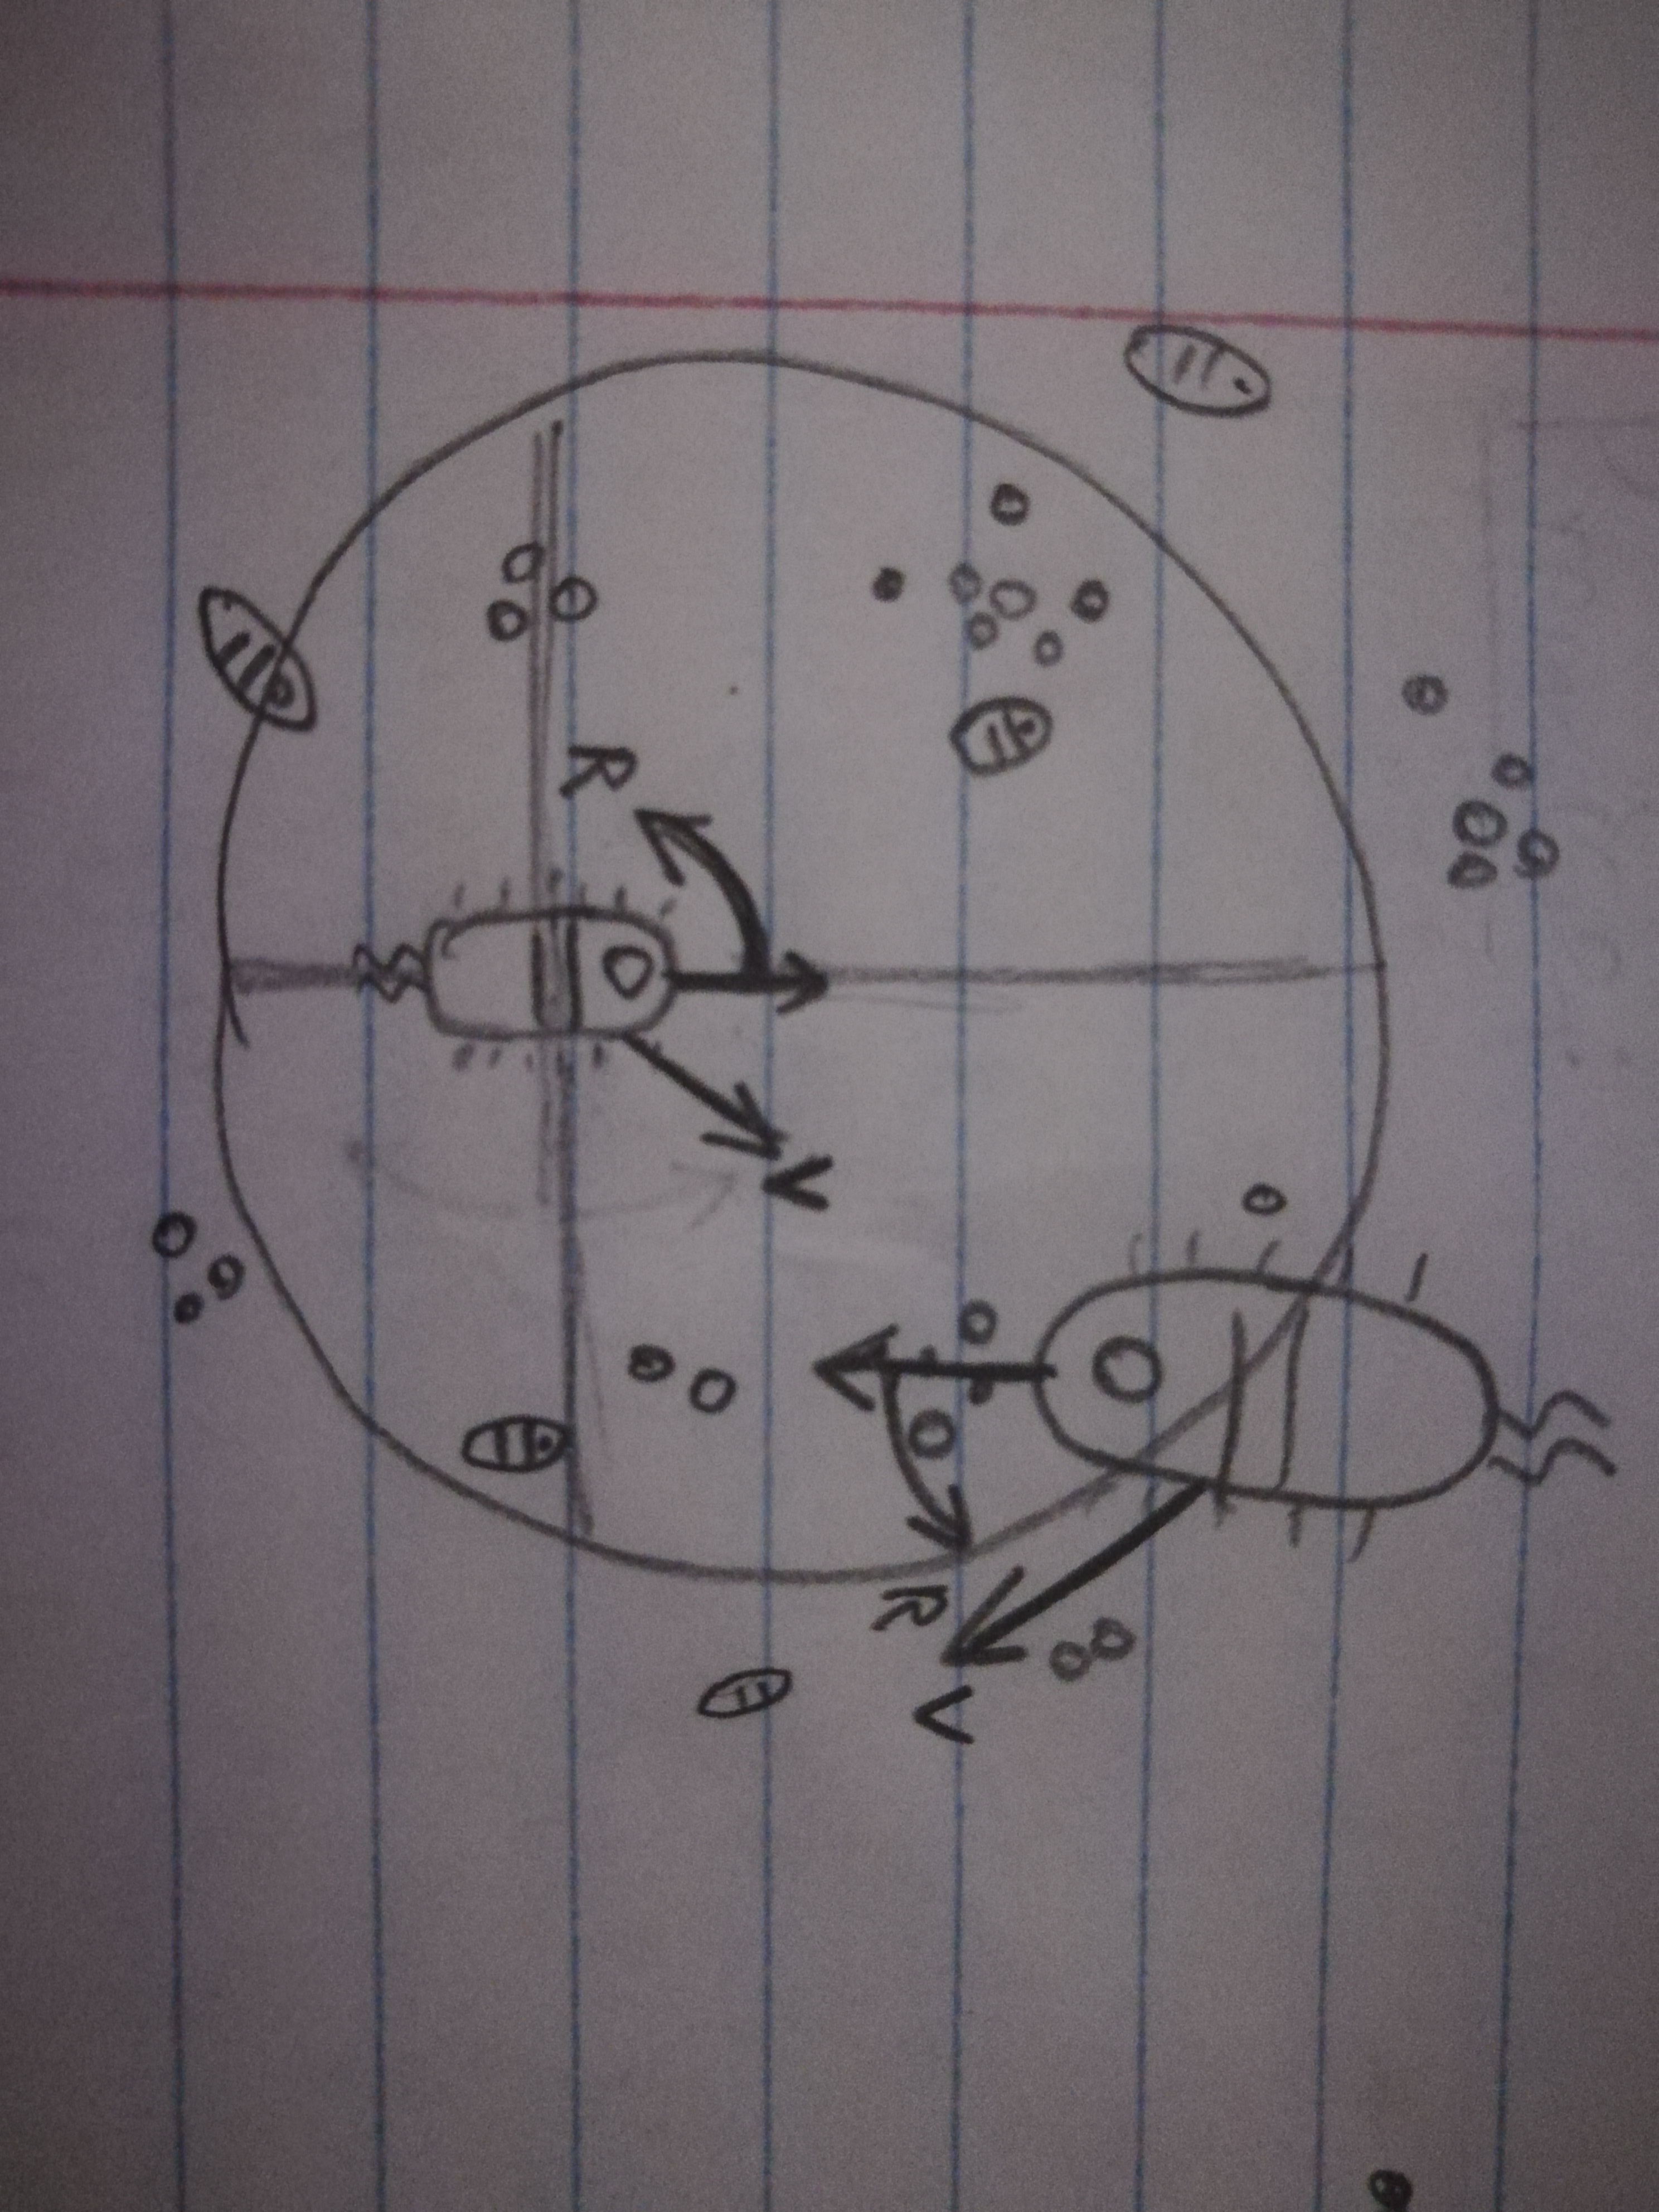 R
V
R
V